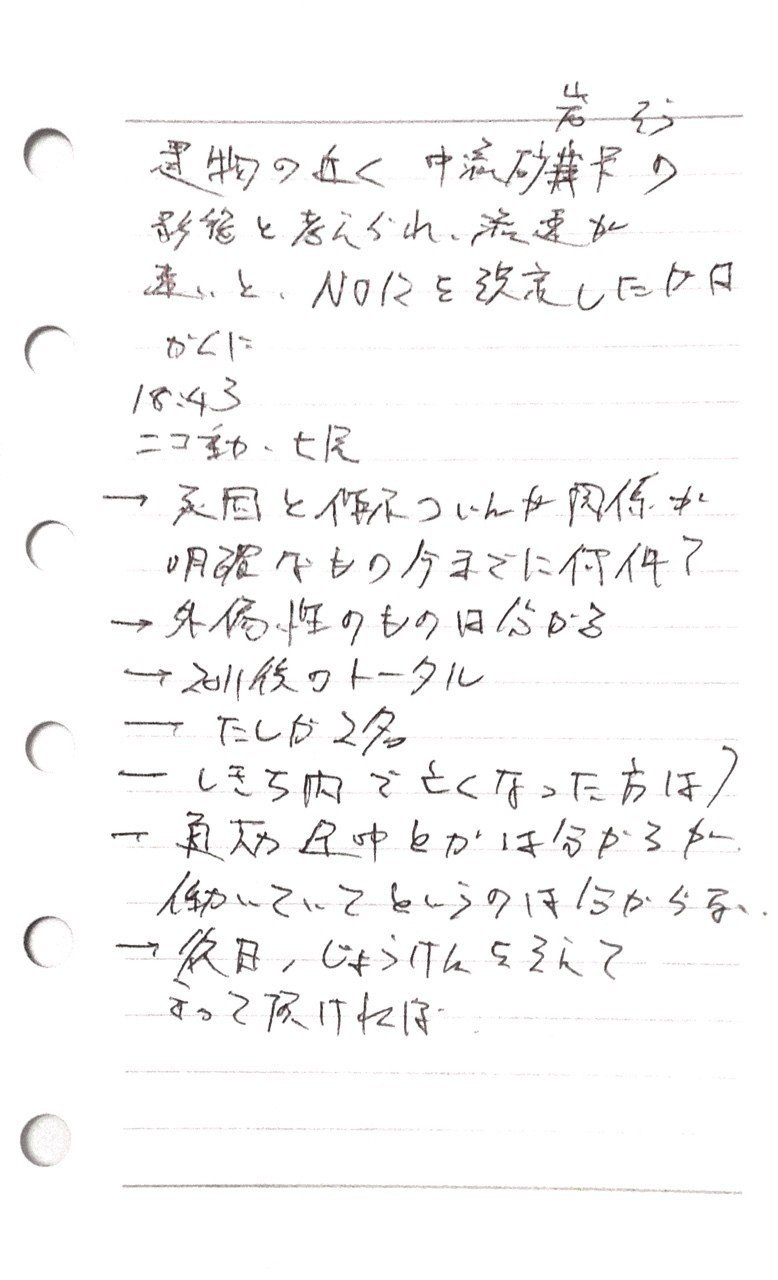 岩 そう
建物の近く 中流砂礫层の
影響と考えられ、流速が
速いと、NO12を設定した方は
かくに
18:43
ニコ動、七尾
→ 死因と作業のいんが関係が
明確なもの今までに何件?
→ 外傷性のものは分かる
→ 2011後のトータル
— たしか2名
— しきち内で亡くなった方は?
— 夏場 中とかは分かるが、
働いていてというのは分からない、
→ 後日、じょうけんをそえて
言って頂ければ